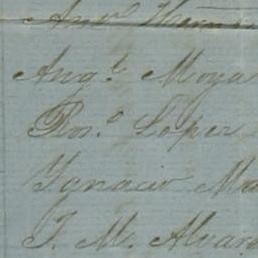 Ang.t Moya
Ros.o Loper
Ygnacio Ma
J. M. Alvar